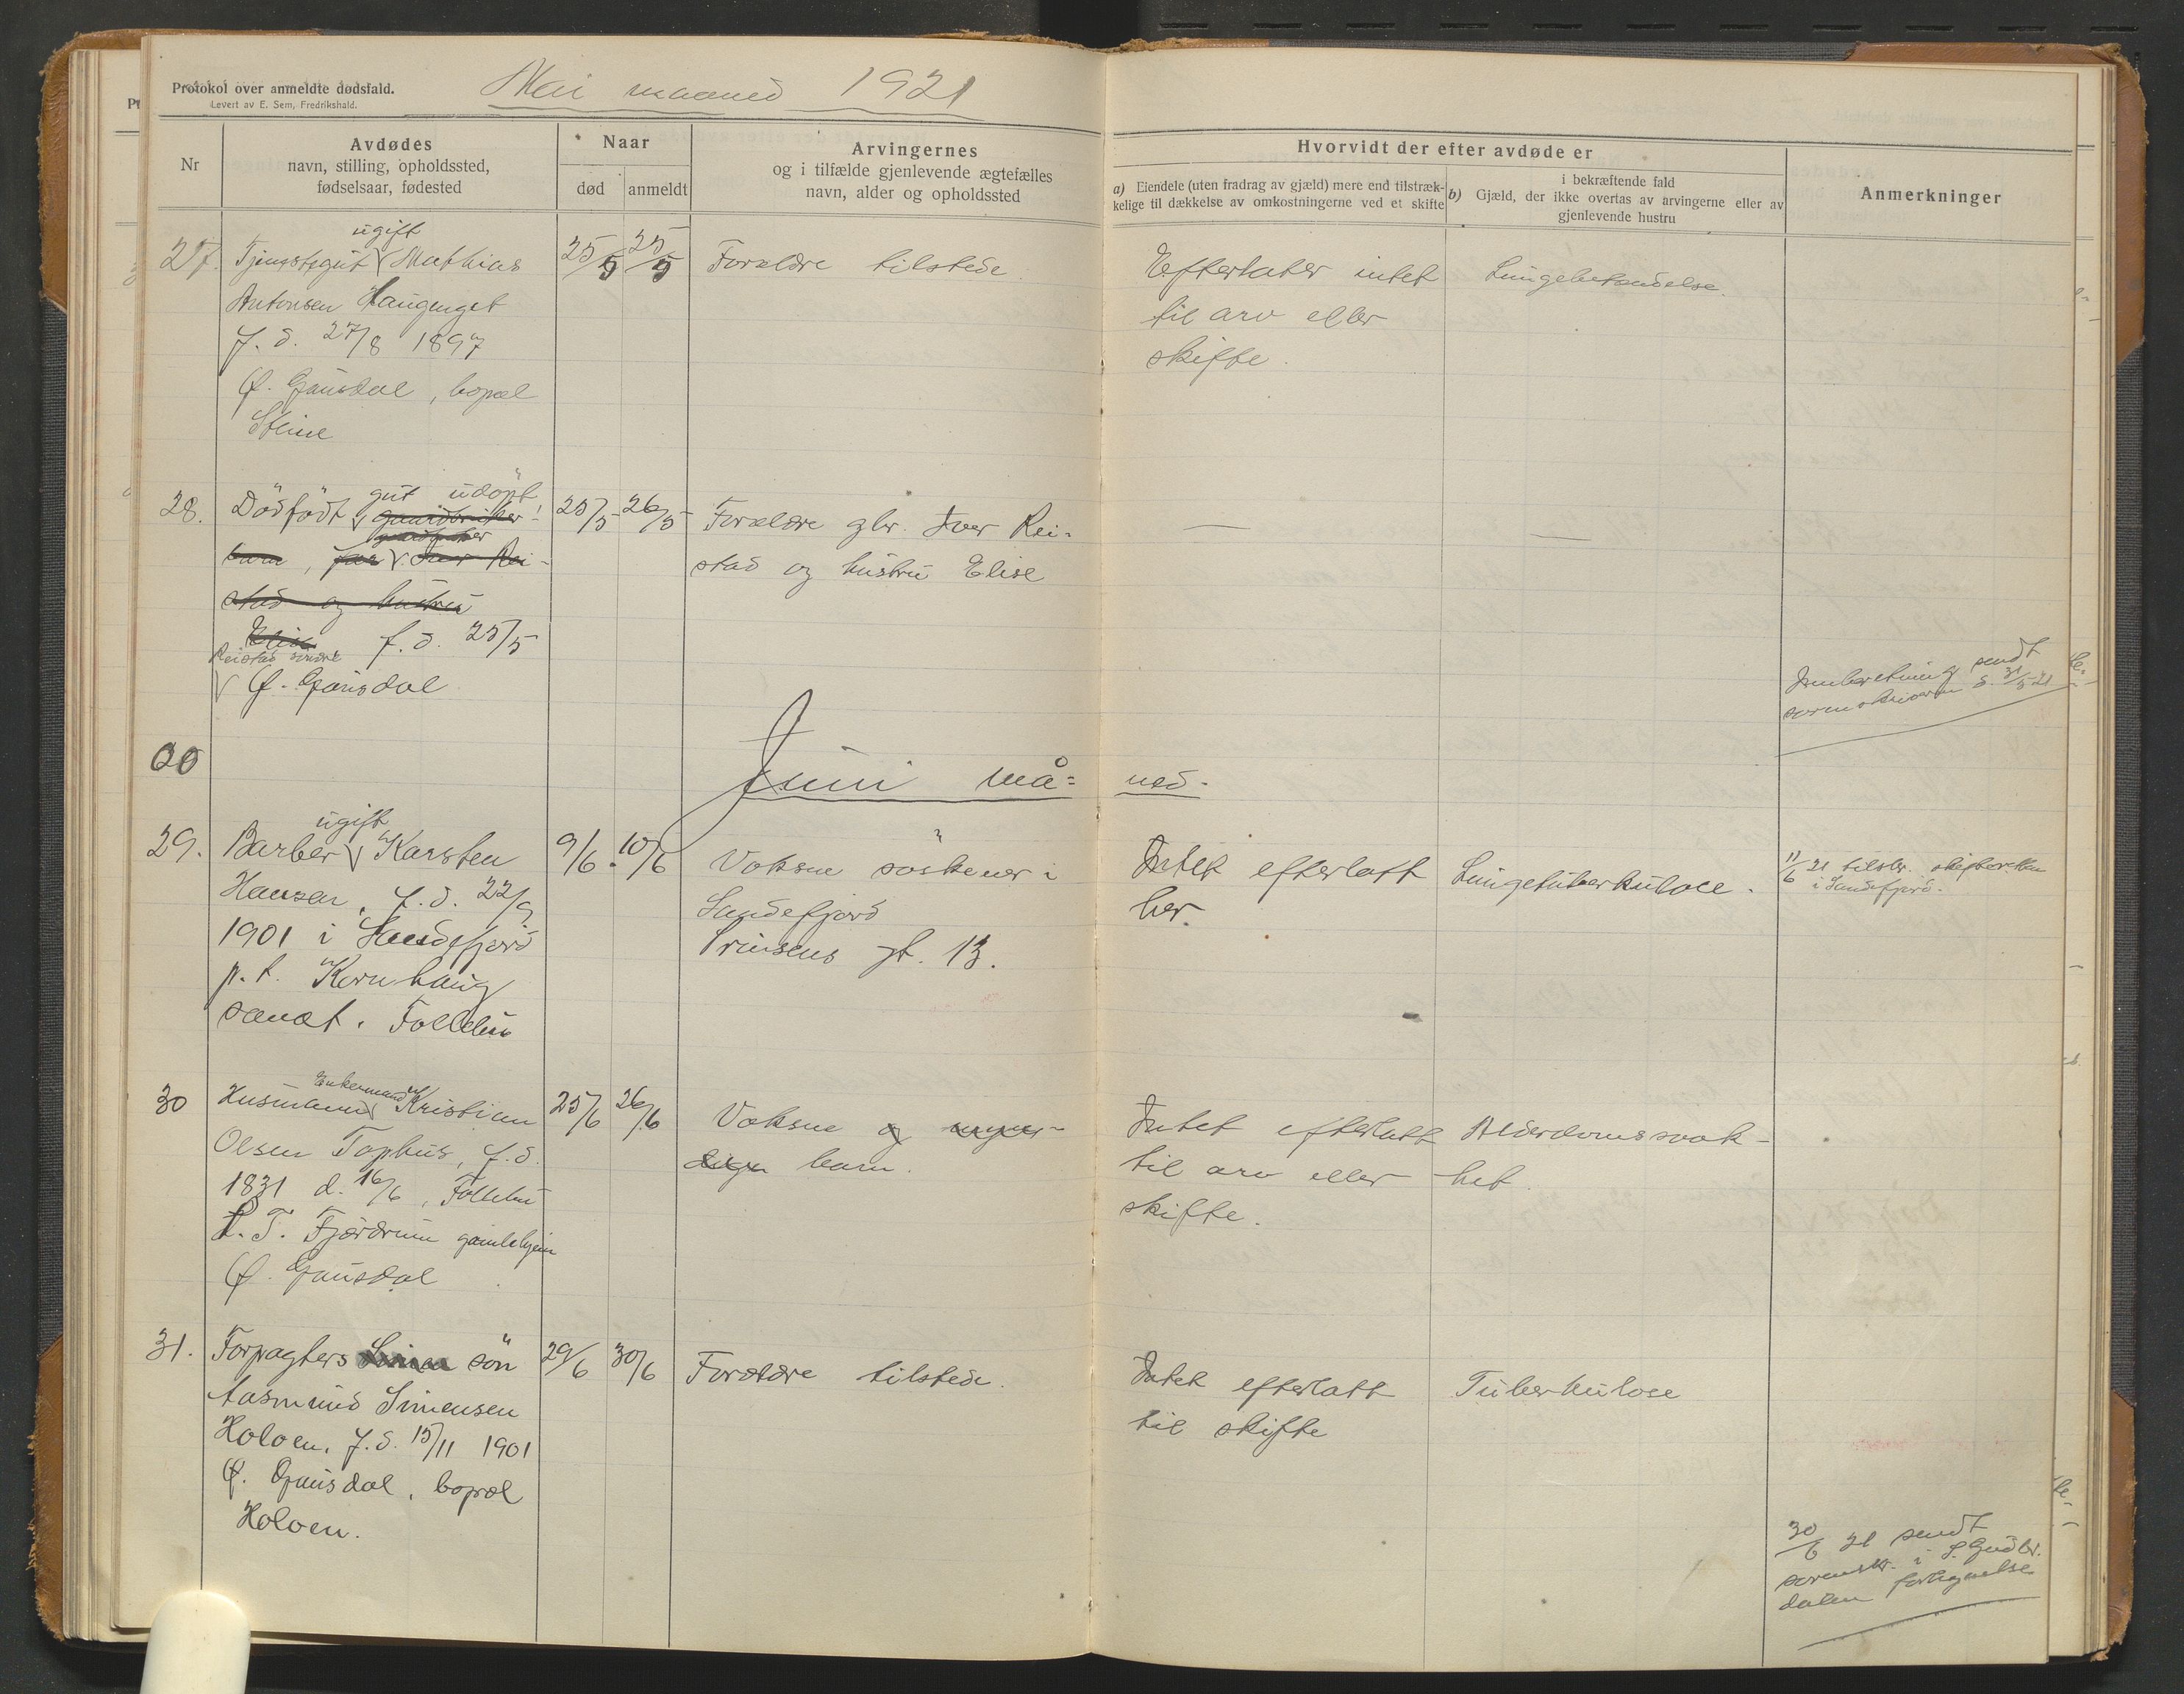 Protokol over anmeldte dødsfald.
Levert av E. Sem, Fredrikshald.
Mai maaned 1921
Nr
Avdødes
navn, stilling, opholdssted,
fødselsaar, fødested
Naar
død
anmeldt
Arvingernes
og i tilfælde gjenlevende ægtefælles
navn, alder og opholdssted
Hvorvidt der efter avdøde er
a) Eiendele (uten fradrag av gjæld) mere end tilstræk-
kelige til dækkelse av omkostningerne ved et skifte
i bekræftende fald
b) Gjæld, der ikke overtas av arvingerne eller av
gjenlevende hustru
Anmerkninger
27.
ugift
Tjenestegut Mathias
Antonsen Haugenget
f. d. 27/8 1897
Ø. Gausdal, bopæl
Steine
25/5
25/5
Forældre tilstede
Efterlater intet
til arv eller
skifte.
Lungebetændelse.
28.
gut udöpt
Dödfödt gaardbruker-
gaardbruker
barn, far Iver Rei-
stad og hustru
Elise f. d. 25/5
Reistad søndre
Ø. Gausdal
25/5
26/5
Forældre gbr. Iver Rei-
stad og hustru Elise
Innberetning sendt
sorenskriveren d. 31/5 21
Juni må- ned.
29.
ugift
Barber Karsten
Hansen, f. d. 22/9
1901 i Sandefjord
p. t. Kornhaug
sanat. Follebu
9/6.
10/6
Voksne söskener i
Sandefjord
Prinsens gt. 13.
Intet efterlatt
her.
Lungetuberkulose.
11/6 21 tilskr. skifteretten
i Sandefjord.
30
Enkemand
Husmand Kristian
Olsen Tophus, f. d.
1831 d. 16/6, Follebu
P. T. Fjerdrum gamlehjem
Ø. Gausdal
25/6
26/6
Voksne og umyn-
dige barn.
Intet efterlatt
til arv eller
skifte.
Alderdomssvak-
het.
31.
Forpagters sön
Aasmund Simensen
Holoen, f. d. 15/11 1901
Ø. Gausdal, bopæl
Holoen.
29/6
30/6
Forældre tilstede.
Intet efterlatt
til skifte
Tuberkulose
30/6 21 sendt
sorenskr. i S. Gudbr.
dalen fortegnelse